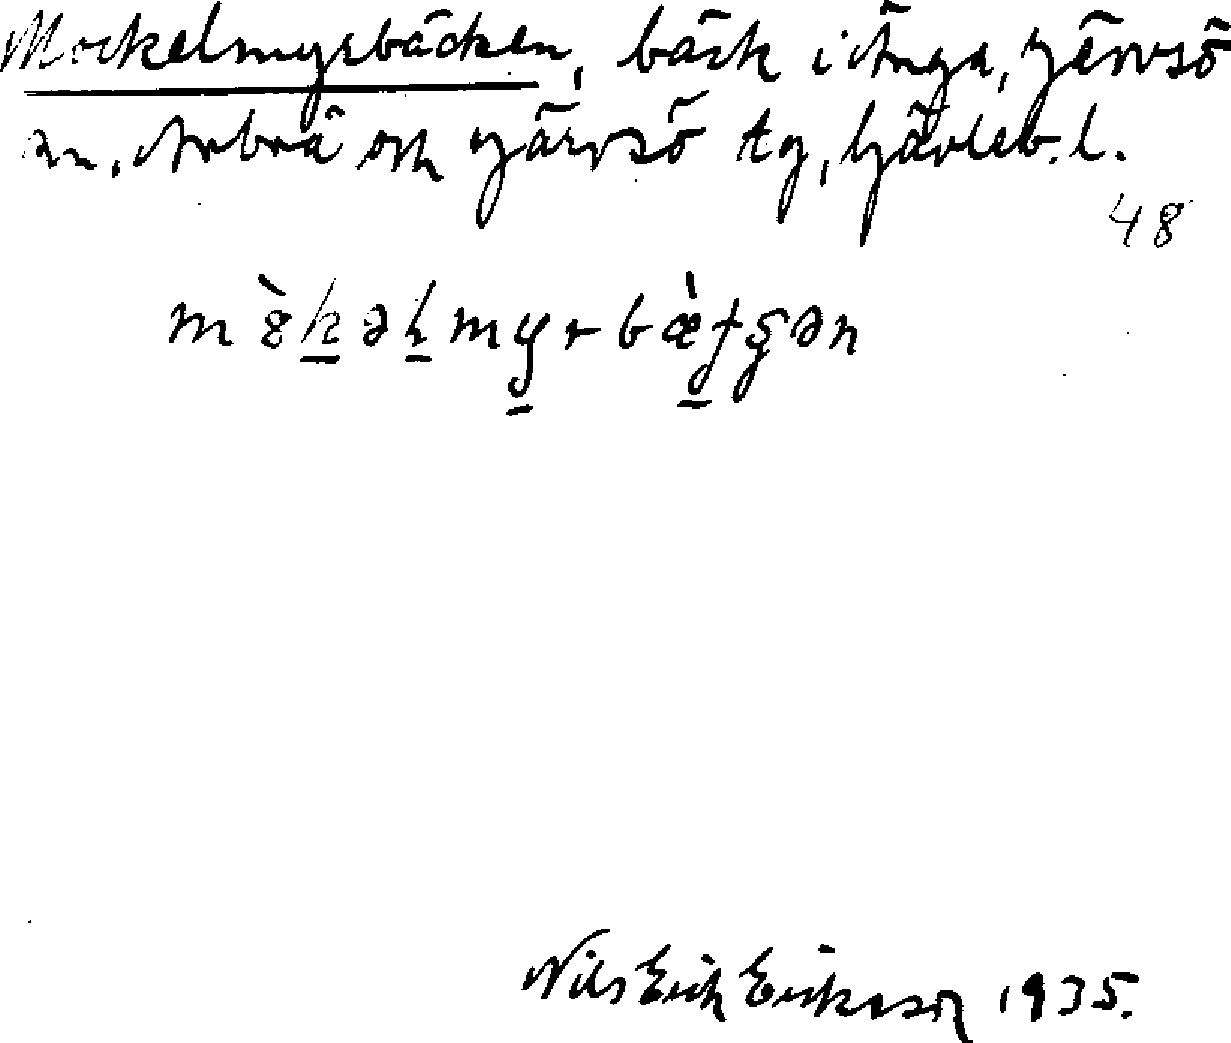 Mockelmyrbäcken, bäck i Änga, Järvsö
sn, Arbrå och Järvsö tg, Gävleb. l.
48
Nils Erich Erikson 1935.